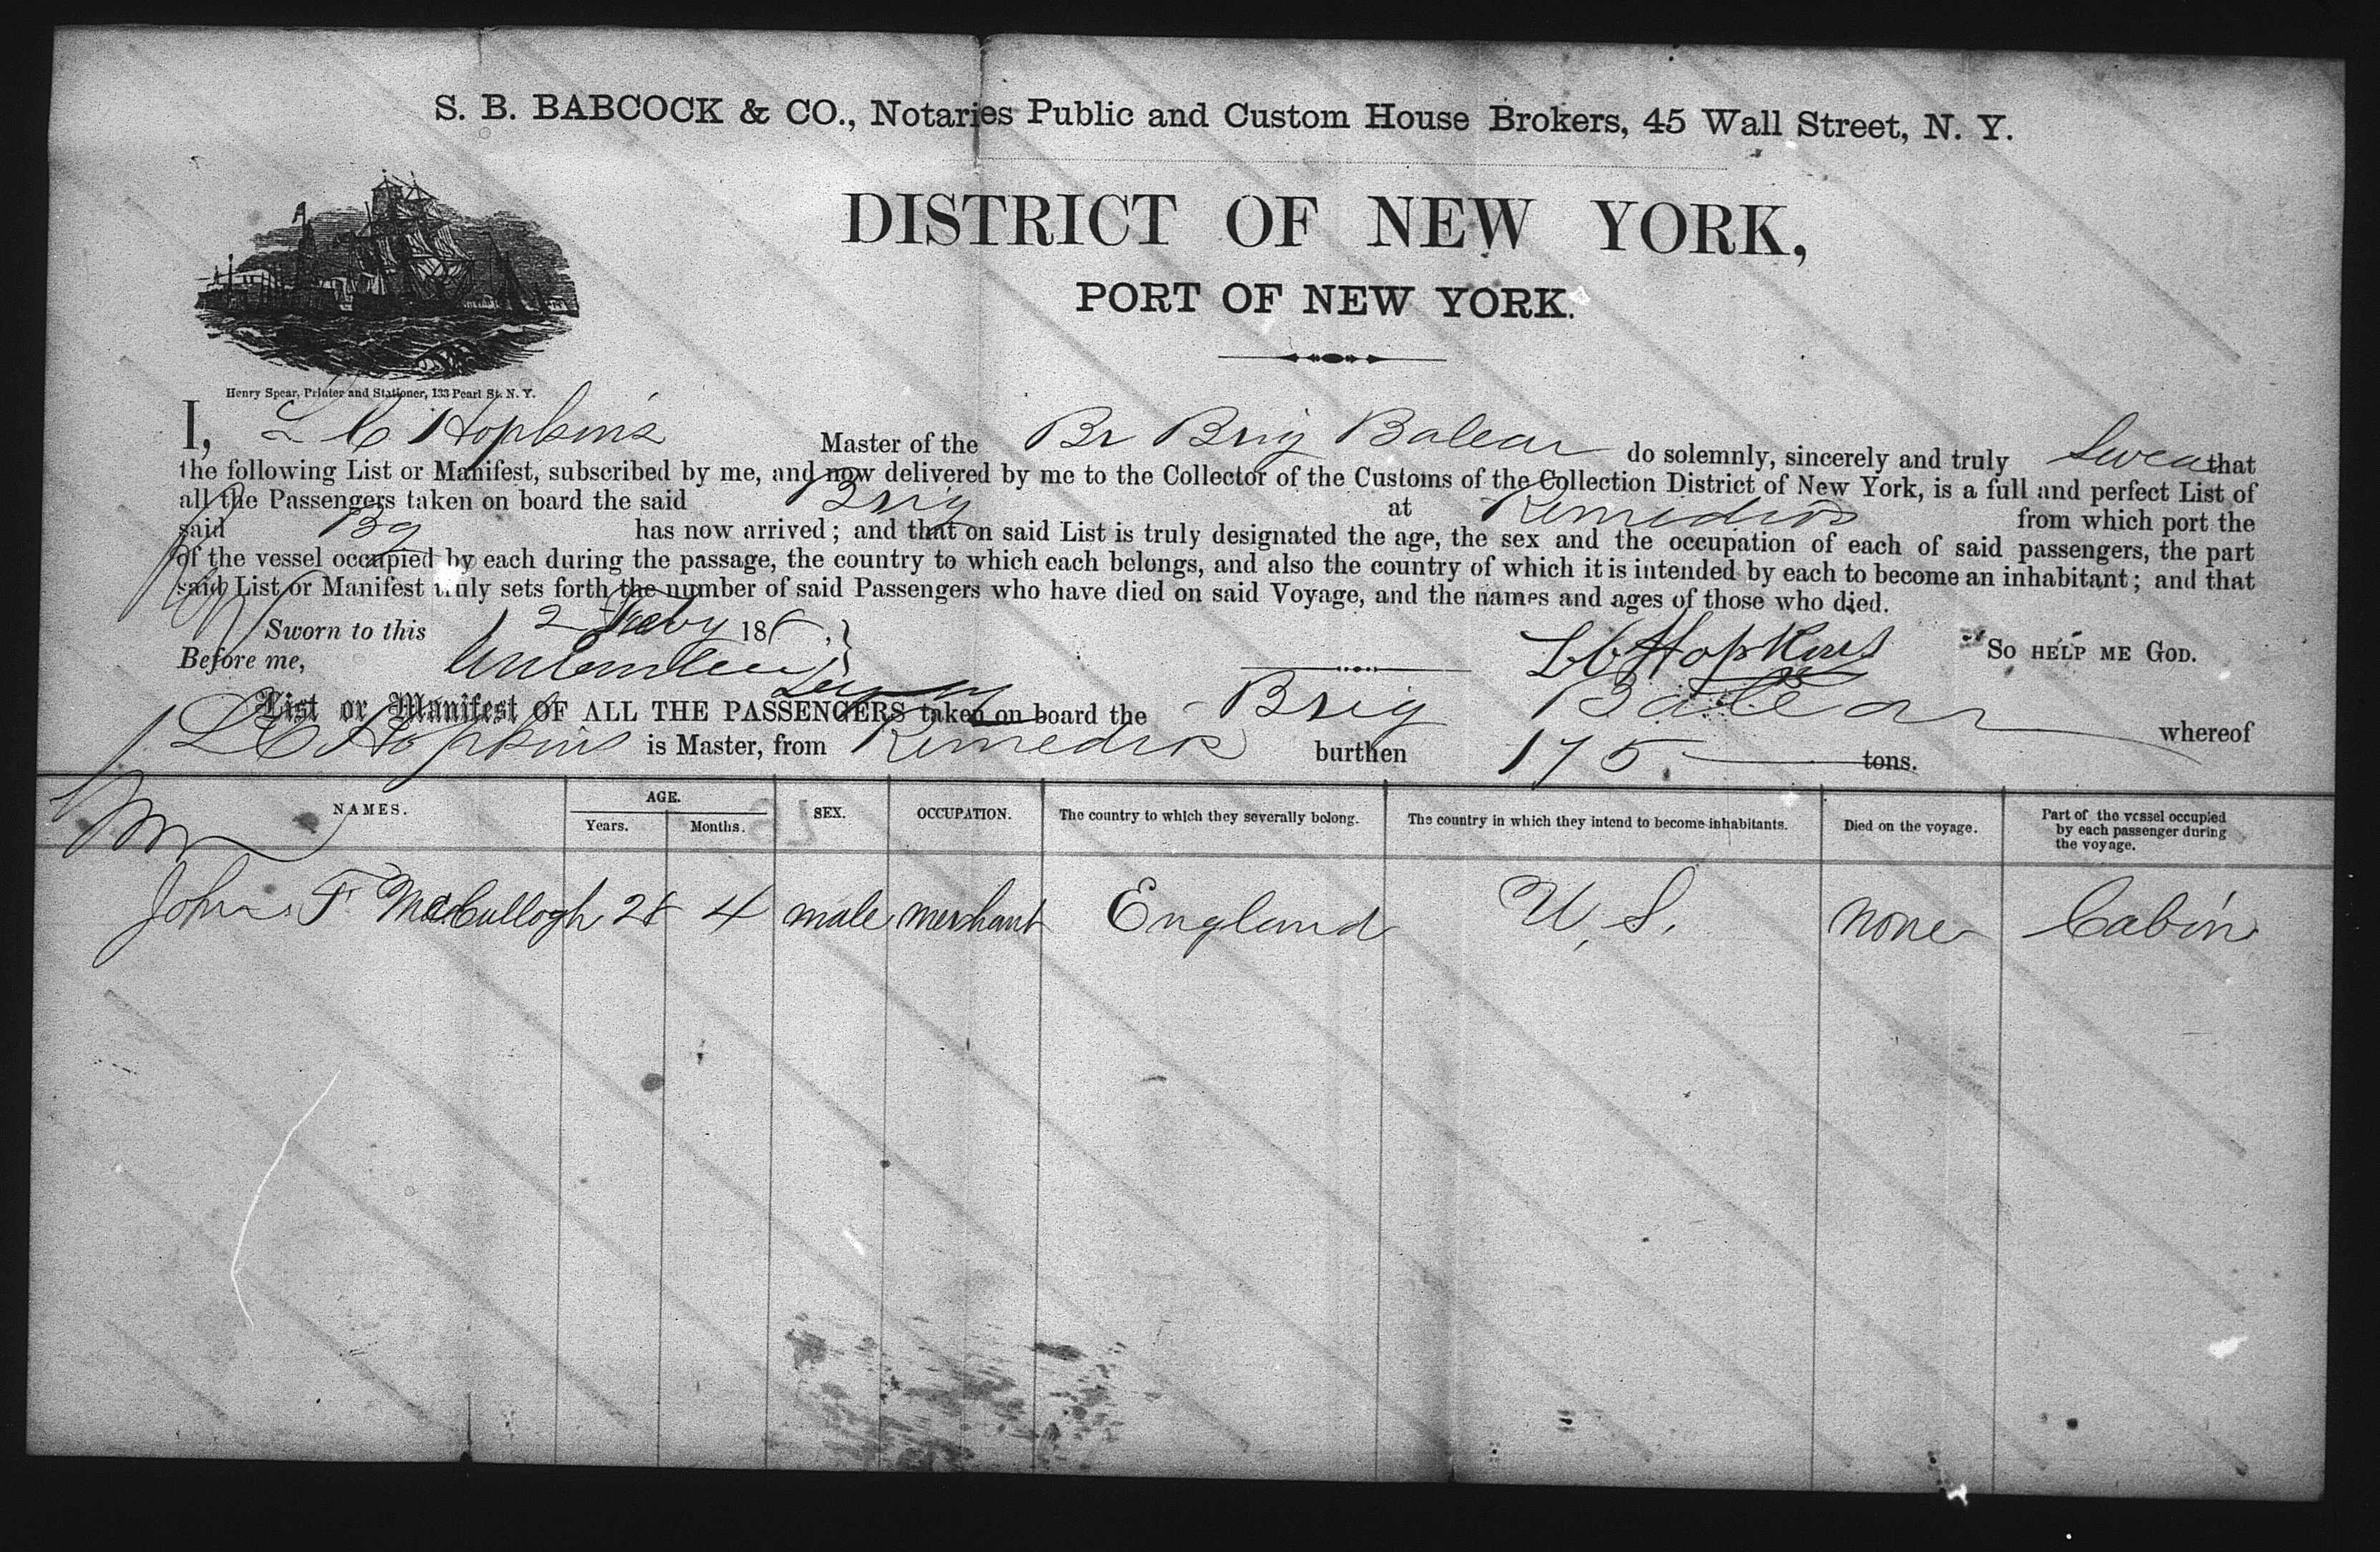 S. B. BABCOCK & CO., Notaries Public and Custom House Brokers, 45 Wall Street, N. Y.
DISTRICT OF NEW YORK,
PORT OF NEW YORK.
Henry Spear, Printer and Stationer, 133 Pearl St. N. Y.
I, L C Hopkins Master of the Br Brig Balear do solemnly, sincerely and truly Swear that
the following List or Manifest, subscribed by me, and now delivered by me to the Collector of the Customs of the Collection District of New York, is a full and perfect List of
all the Passengers taken on board the said Brig at Remedios from which port the
said Bg has now arrived; and that on said List is truly designated the age, the sex and the occupation of each of said passengers, the part
of the vessel occupied by each during the passage, the country to which each belongs, and also the country of which it is intended by each to become an inhabitant; and that
said List or Manifest truly sets forth the number of said Passengers who have died on said Voyage, and the names and ages of those who died.
Sworn to this 12 July 18
Before me, L C Hopkins So HELP ME GOD.
List or Manifest OF ALL THE PASSENGERS taken on board the Brig Balear whereof
L C Hopkins is Master, from Remedios burthen 175 tons.
NAMES. AGE. Years. Months. SEX. OCCUPATION. The country to which they severally belong. The country in which they intend to become inhabitants. Died on the voyage. Part of the vessel occupied by each passenger during the voyage.
John F McCullogh 28 4 male merchant England U. S. none Cabin